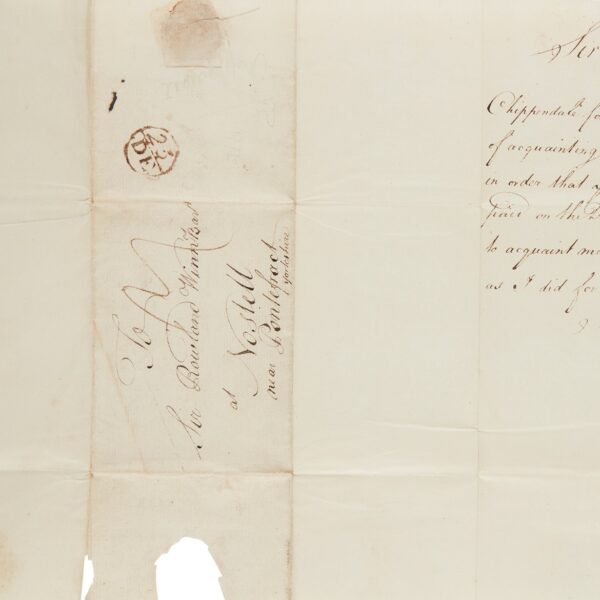 22
DE
To
Sir Rowland Winn Bart
at Nostell
near Pontefract
Yorkshire
Sir
Chippendale fo
of acquainting
in order that y
paid on the 2
to acquaint m
as I did for